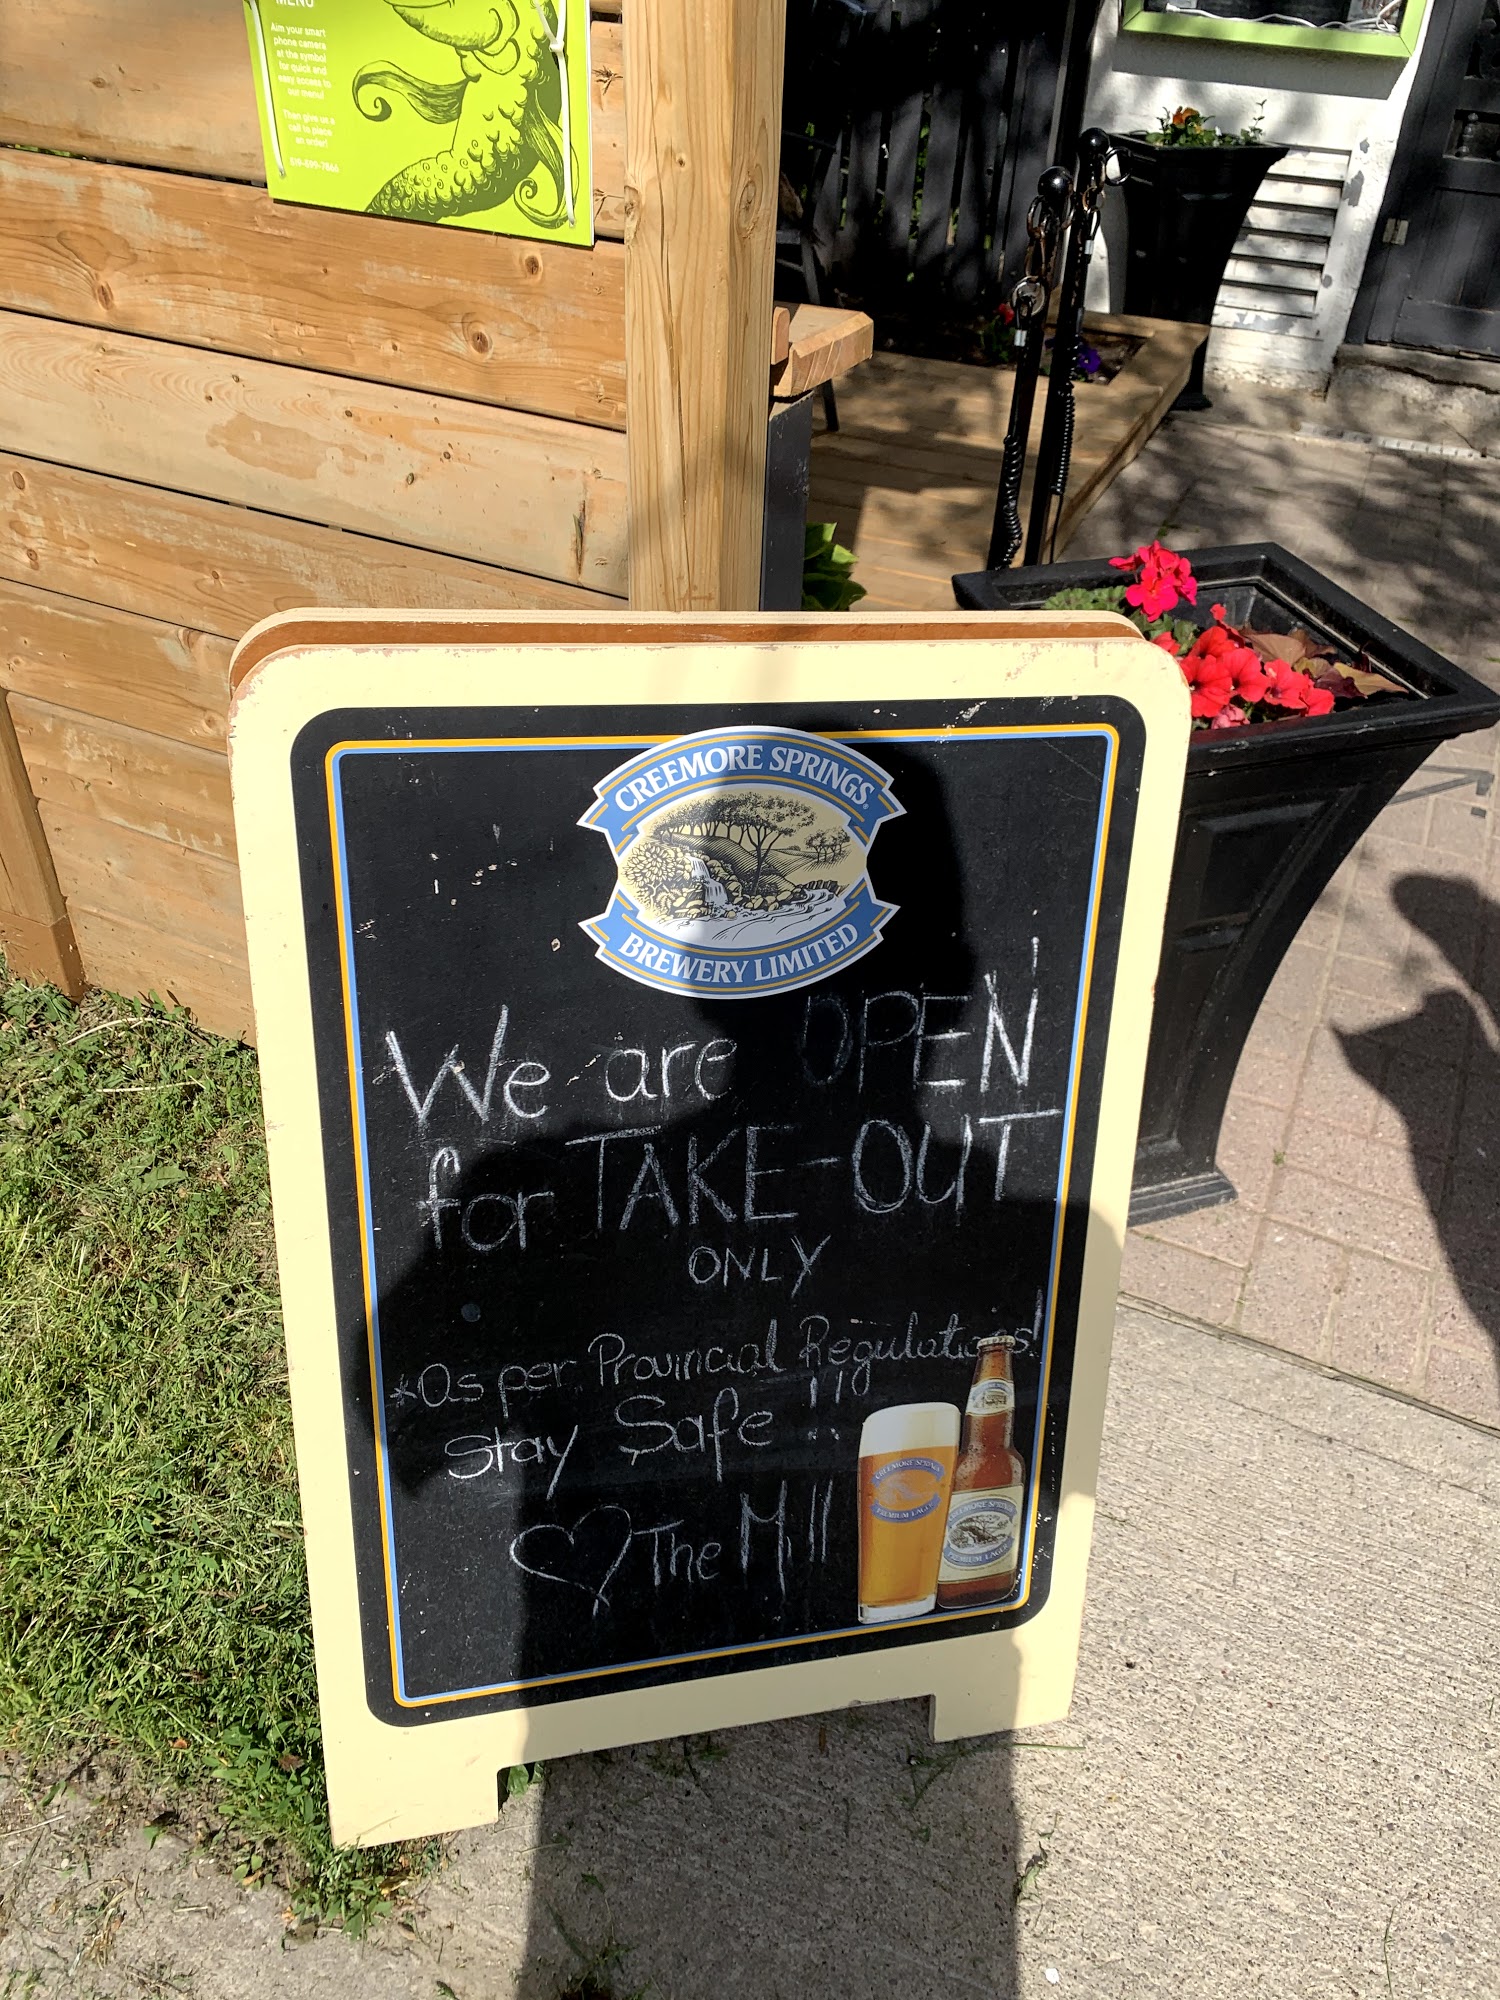 MENU
Aim your smart
phone camera
at the symbol
for quick and
easy access to
our menu!
Then give us a
call to place
an order!
519-599-7866
CREEMORE SPRINGS®
BREWERY LIMITED
We are OPEN
for TAKE-OUT
ONLY
*as per Provincial Regulations!
Stay Safe !!!
♡ The Mill
CREEMORE SPRINGS
PREMIUM LAGER
CREEMORE SPRINGS
PREMIUM LAGER